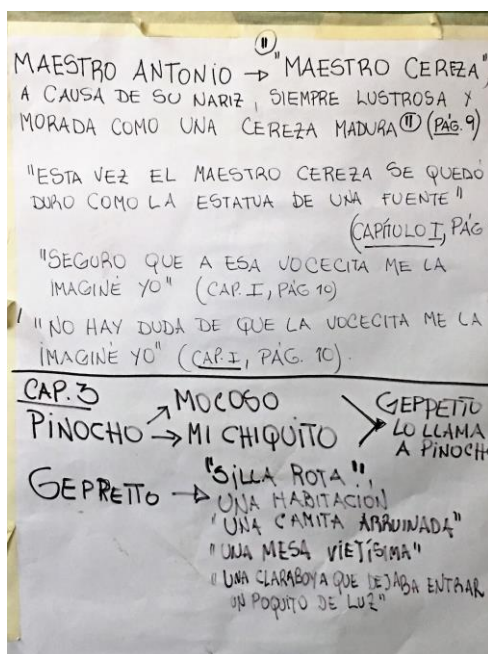 "
MAESTRO ANTONIO → "MAESTRO CEREZA",
A CAUSA DE SU NARIZ, SIEMPRE LUSTROSA Y
MORADA COMO UNA CEREZA MADURA" (PÁG. 9)
"ESTA VEZ EL MAESTRO CEREZA SE QUEDÓ
DURO COMO LA ESTATUA DE UNA FUENTE"
(CAPÍTULO I, PÁG
"SEGURO QUE A ESA VOCECITA ME LA
IMAGINÉ YO" (CAP. I, PÁG 10)
"NO HAY DUDA DE QUE LA VOCECITA ME LA
IMAGINÉ YO" (CAP. I, PÁG. 10).
CAP. 3
PINOCHO → MOCOSO
→ MI CHIQUITO
GEPPETTO
LO LLAMA
A PINOCH
GEPRETTO → "SILLA ROTA",
UNA HABITACIÓN
"UNA CAMITA ARRUINADA"
"UNA MESA VIETÍSIMA"
"UNA CLARABOYA QUE DEJABA ENTRAR
UN POQUITO DE LUZ"